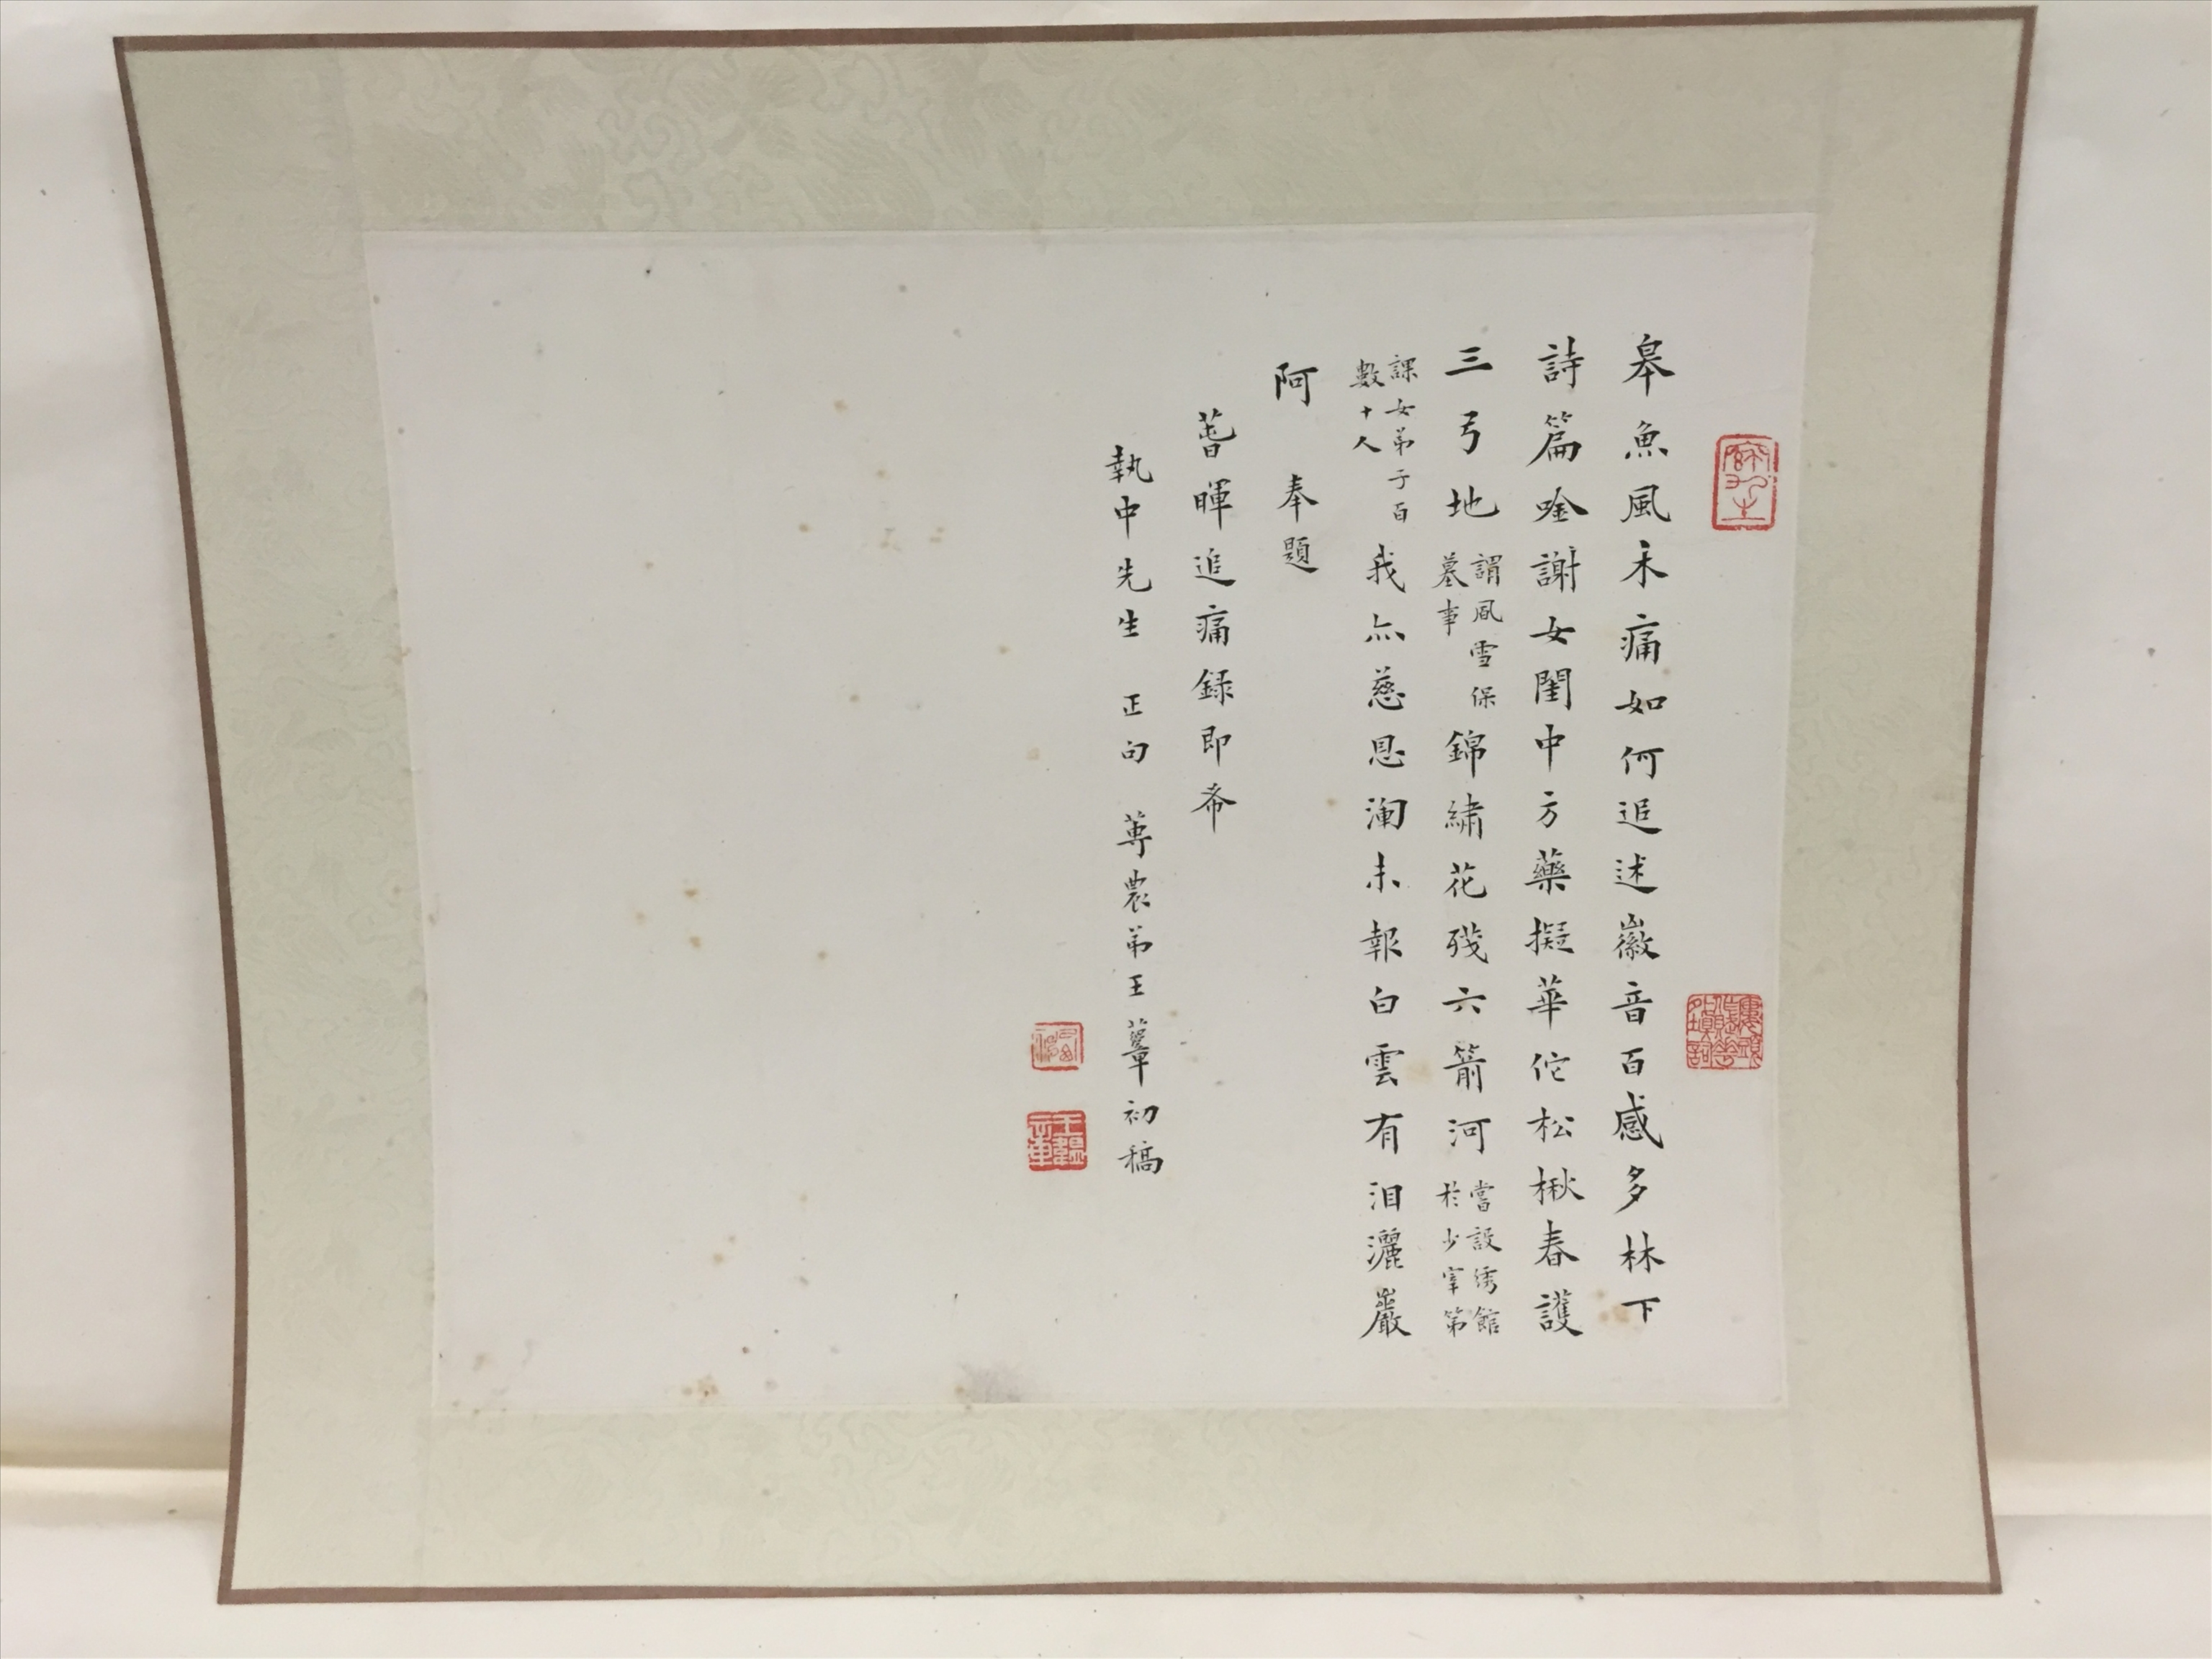 皋魚風木痛如何追述徽音百感多林下
詩篇唫謝女閨中方藥擬華佗松楸春護
三弓地
謂風雪保
墓事
錦繡花殘六箭河
嘗設綉館
於少宰第
課女弟子百
數十人
我亦慈恩瀾未報白雲有泪灑巖
阿 奉題
萅暉追痛録即希
執中先生 正句 蓴農弟王蘊章初稿
王蘊章